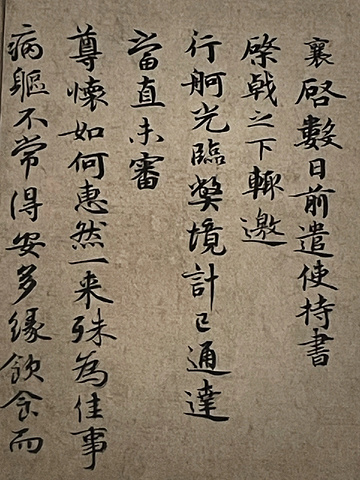 襄啓數日前遣使持書
棨戟之下輙邀
行舸光臨獘境計已通達
當直未審
尊懐如何惠然一来殊為佳事
病軀不常得安多縁飲食而